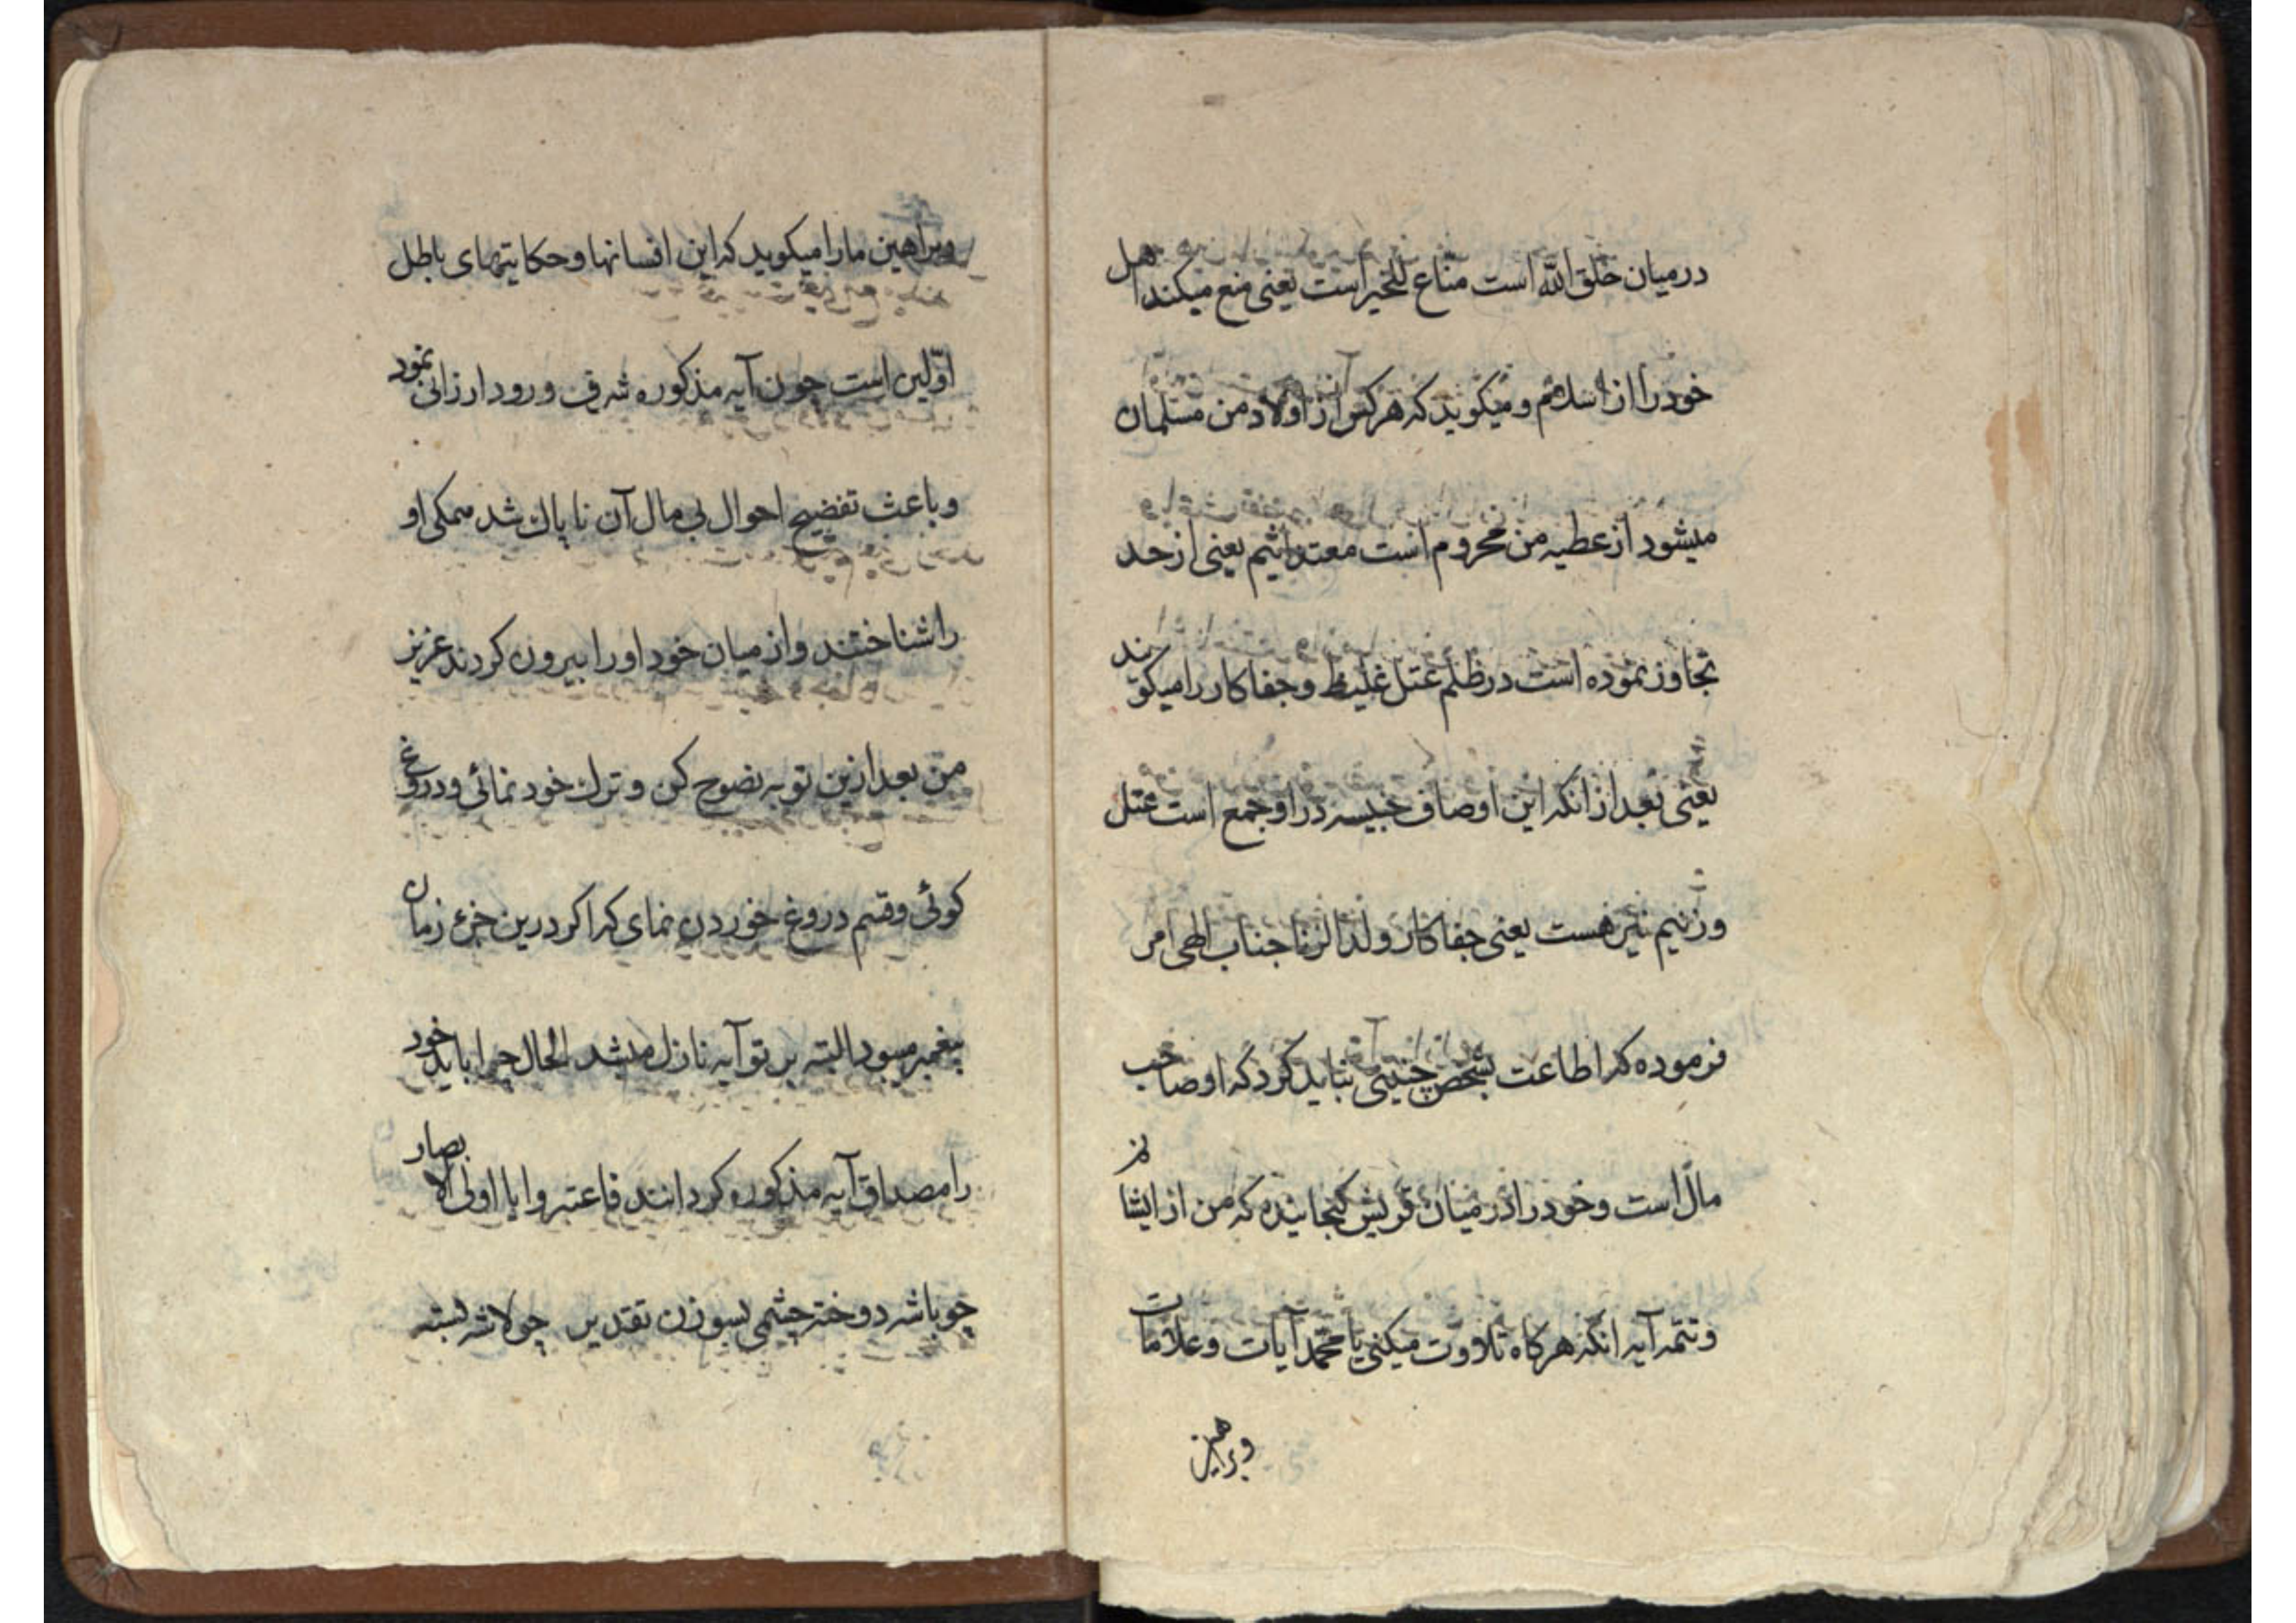 درمیان خلق الله است مناع للخیر است یعنی منع میکند اهل
خود را از اسلام و میکوید که هرکس از اولاد من مسلمان
میشود از عطیه من محروم است معتد اثیم یعنی از حد
تجاوز نموده است در ظلم عتل غلیظ و جفاکار را میکویند
یعنی بعد از انکه این اوصاف خبیسه در او جمع است عتل
و زنیم نیز هست یعنی جفاکار و ولد الزنا جناب الهی امر
فرموده که اطاعت بشخص چنینی نباید کرد که او صاحب
مال است و خود را در میان قریش کنجانیده که من از ایشانم
و تتمه آیه انکه هرکاه تلاوت میکنی یا محمد آیات و علامات
وبراهین
وبراهین ما را میکوید که این افسانها و حکایتهای باطل
اوّلین است چون آیه مذکوره شرف ورود ارزانی نمود
و باعث تفضیح احوال بی مال آن ناپاک شد همکی او
را شناختند و از میان خود او را بیرون کردند عزیز
من بعد ازین توبه نصوح کن و ترک خود نمائی و دروغ
کوئی و قسم دروغ خوردن نمای که اکر درین جزء زمان
پیغمبر میبود البته بر تو آیه نازل میشد الحال چرا باید خود
را مصداق آیه مذکوره کردانند فاعتبروا یا اولی الابصار
چو باشد دوخته چشمی بسوزن تقدیر چو لاشه بسته